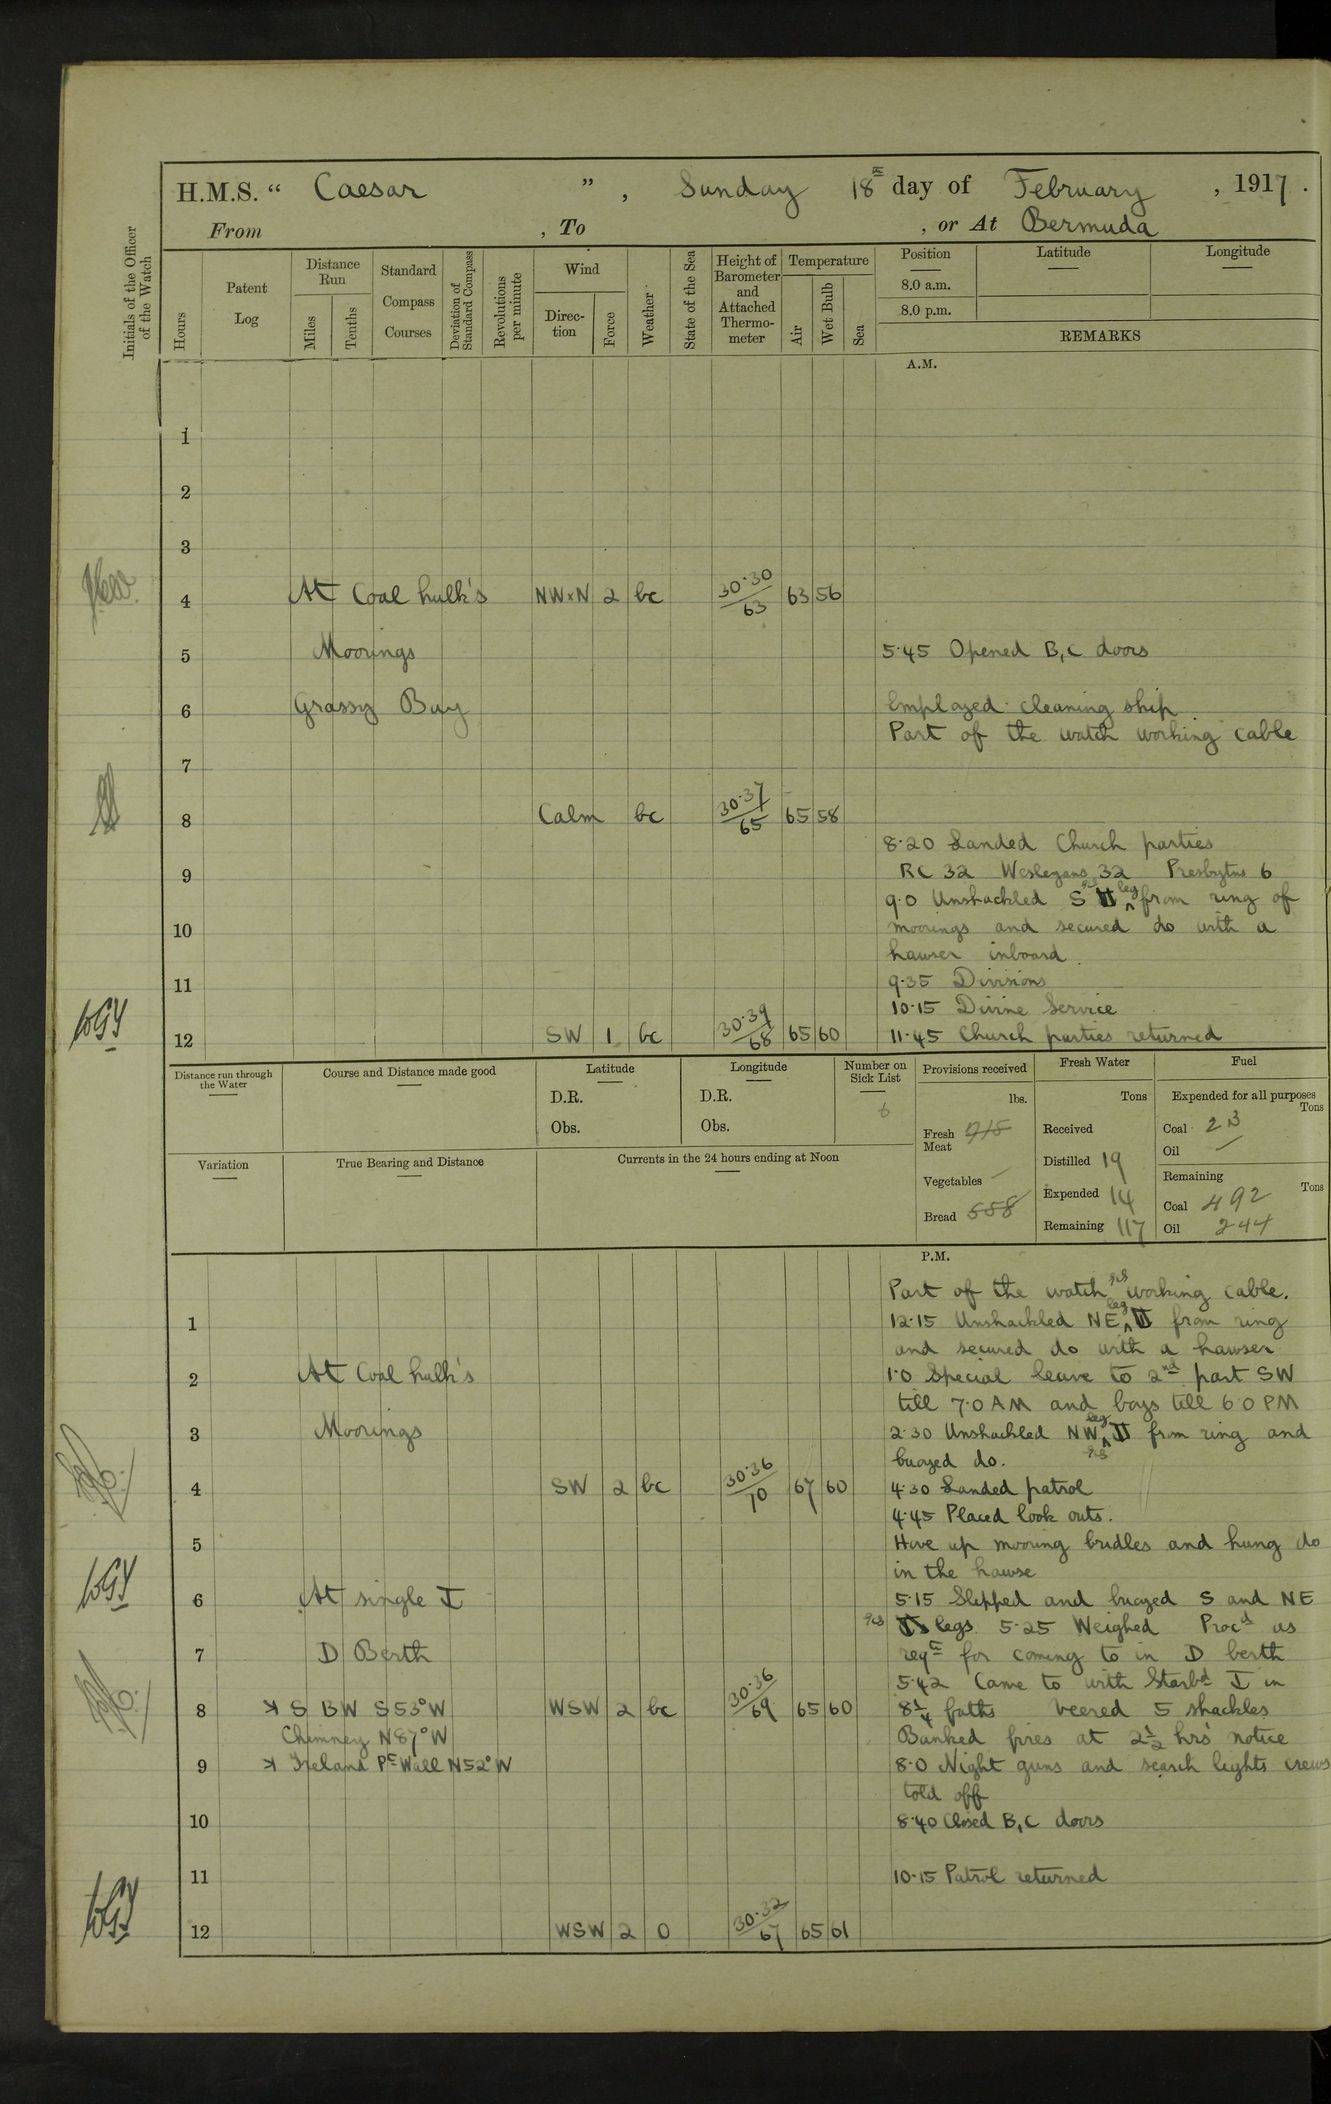 H.M.S. “ Caesar ” , Sunday 18th day of February , 1917 .
From , To , or At Bermuda
Initials of the Officer of the Watch
Hours
Patent Log
Distance Run
Miles
Tenths
Standard Compass Courses
Deviation of Standard Compass
Revolutions per minute
Wind
Direc-tion
Force
Weather
State of the Sea
Height of Barometer and Attached Thermo-meter
Temperature
Air
Wet Bulb
Sea
Position
8.0 a.m.
8.0 p.m.
Latitude
Longitude
REMARKS
A.M.
1
2
3
4 At Coal hulk's NWxN 2 bc 30·30/63 63 56
5 Moorings 5·45 Opened B,C doors
6 Grassy Bay Employed cleaning ship
Part of the watch working cable
7
8 Calm bc 30·37/65 65 58
8·20 Landed Church parties
9 RC 32 Wesleyans 32 Presbytns 6
9·0 Unshackled S leg from ring of
10 moorings and secured do with a
hawser inboard.
11 9·35 Divisions
10·15 Divine Service
12 SW 1 bc 30·39/68 65 60 11·45 Church parties returned
Distance run through the Water
Course and Distance made good
Latitude
D.R.
Obs.
Longitude
D.R.
Obs.
Number on Sick List
6
Provisions received
lbs.
Fresh Meat 915
Vegetables —
Bread 558
Fresh Water
Tons
Received
Distilled 19
Expended 14
Remaining 117
Fuel
Expended for all purposes
Tons
Coal 23
Oil —
Remaining
Tons
Coal 492
Oil 244
Variation
True Bearing and Distance
Currents in the 24 hours ending at Noon
P.M.
Part of the watch working cable.
1 12·15 Unshackled NE leg from ring
and secured do with a hawser
2 At Coal hulk's 1·0 Special leave to 2nd part SW
till 7·0 AM and boys till 6·0 PM
3 Moorings 2·30 Unshackled NW leg from ring and
buoyed do.
4 SW 2 bc 30·36/70 67 60 4·30 Landed patrol
4·45 Placed look outs.
5 Hove up mooring bridles and hung do
in the hawse
6 At single I 5·15 Slipped and buoyed S and NE
legs. 5·25 Weighed Procd as
7 D Berth reqte for coming to in D berth
5·42 Came to with Starbd I in
8 S BW S53°W WSW 2 bc 30·36/69 65 60 8¼ faths veered 5 shackles
Chimney N87°W Banked fires at 2½ hrs' notice
9 Ireland Pt Wall N52°W 8·0 Night guns and search lights crews
told off
10 8·40 Closed B,C doors
11 10·15 Patrol returned
12 WSW 2 o 30·32/67 65 61